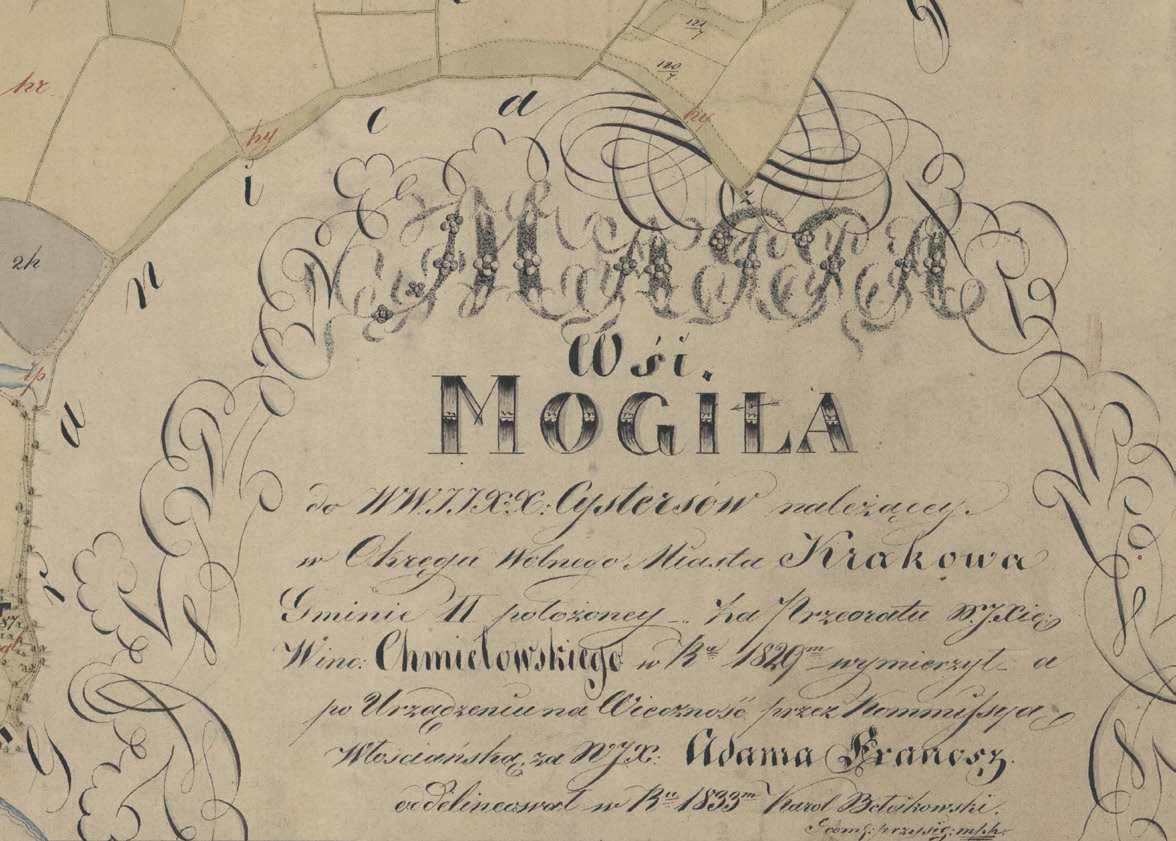 121/7
120/7
hr
hy
hv
c
a
i
n
a
r
G
z
2h
ip
MAPPA
Wśi.
MOGIŁA
do WWJJXX: Cystersów należącey.
w Okręgu Wolnego Miasta Krakowa
Gminie II położoney za Przeoratu W.JXię:
Winc: Chmielowskiego w Rᵘ 1829ᵐ wymierzył a
po Urządzeniu na Wieczność przez Kommissyą
Włościańską, za WJX: Adama Francsz.
oddelineował w Rᵘ 1833ᵐ Karol
Geom: przysię: mph